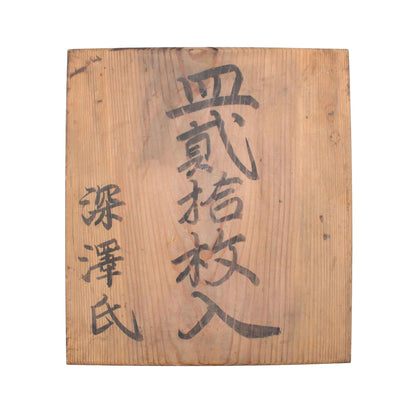 皿貳拾枚入
深澤氏